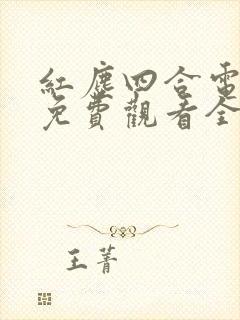 紅塵四合電
免費觀看全
王菁